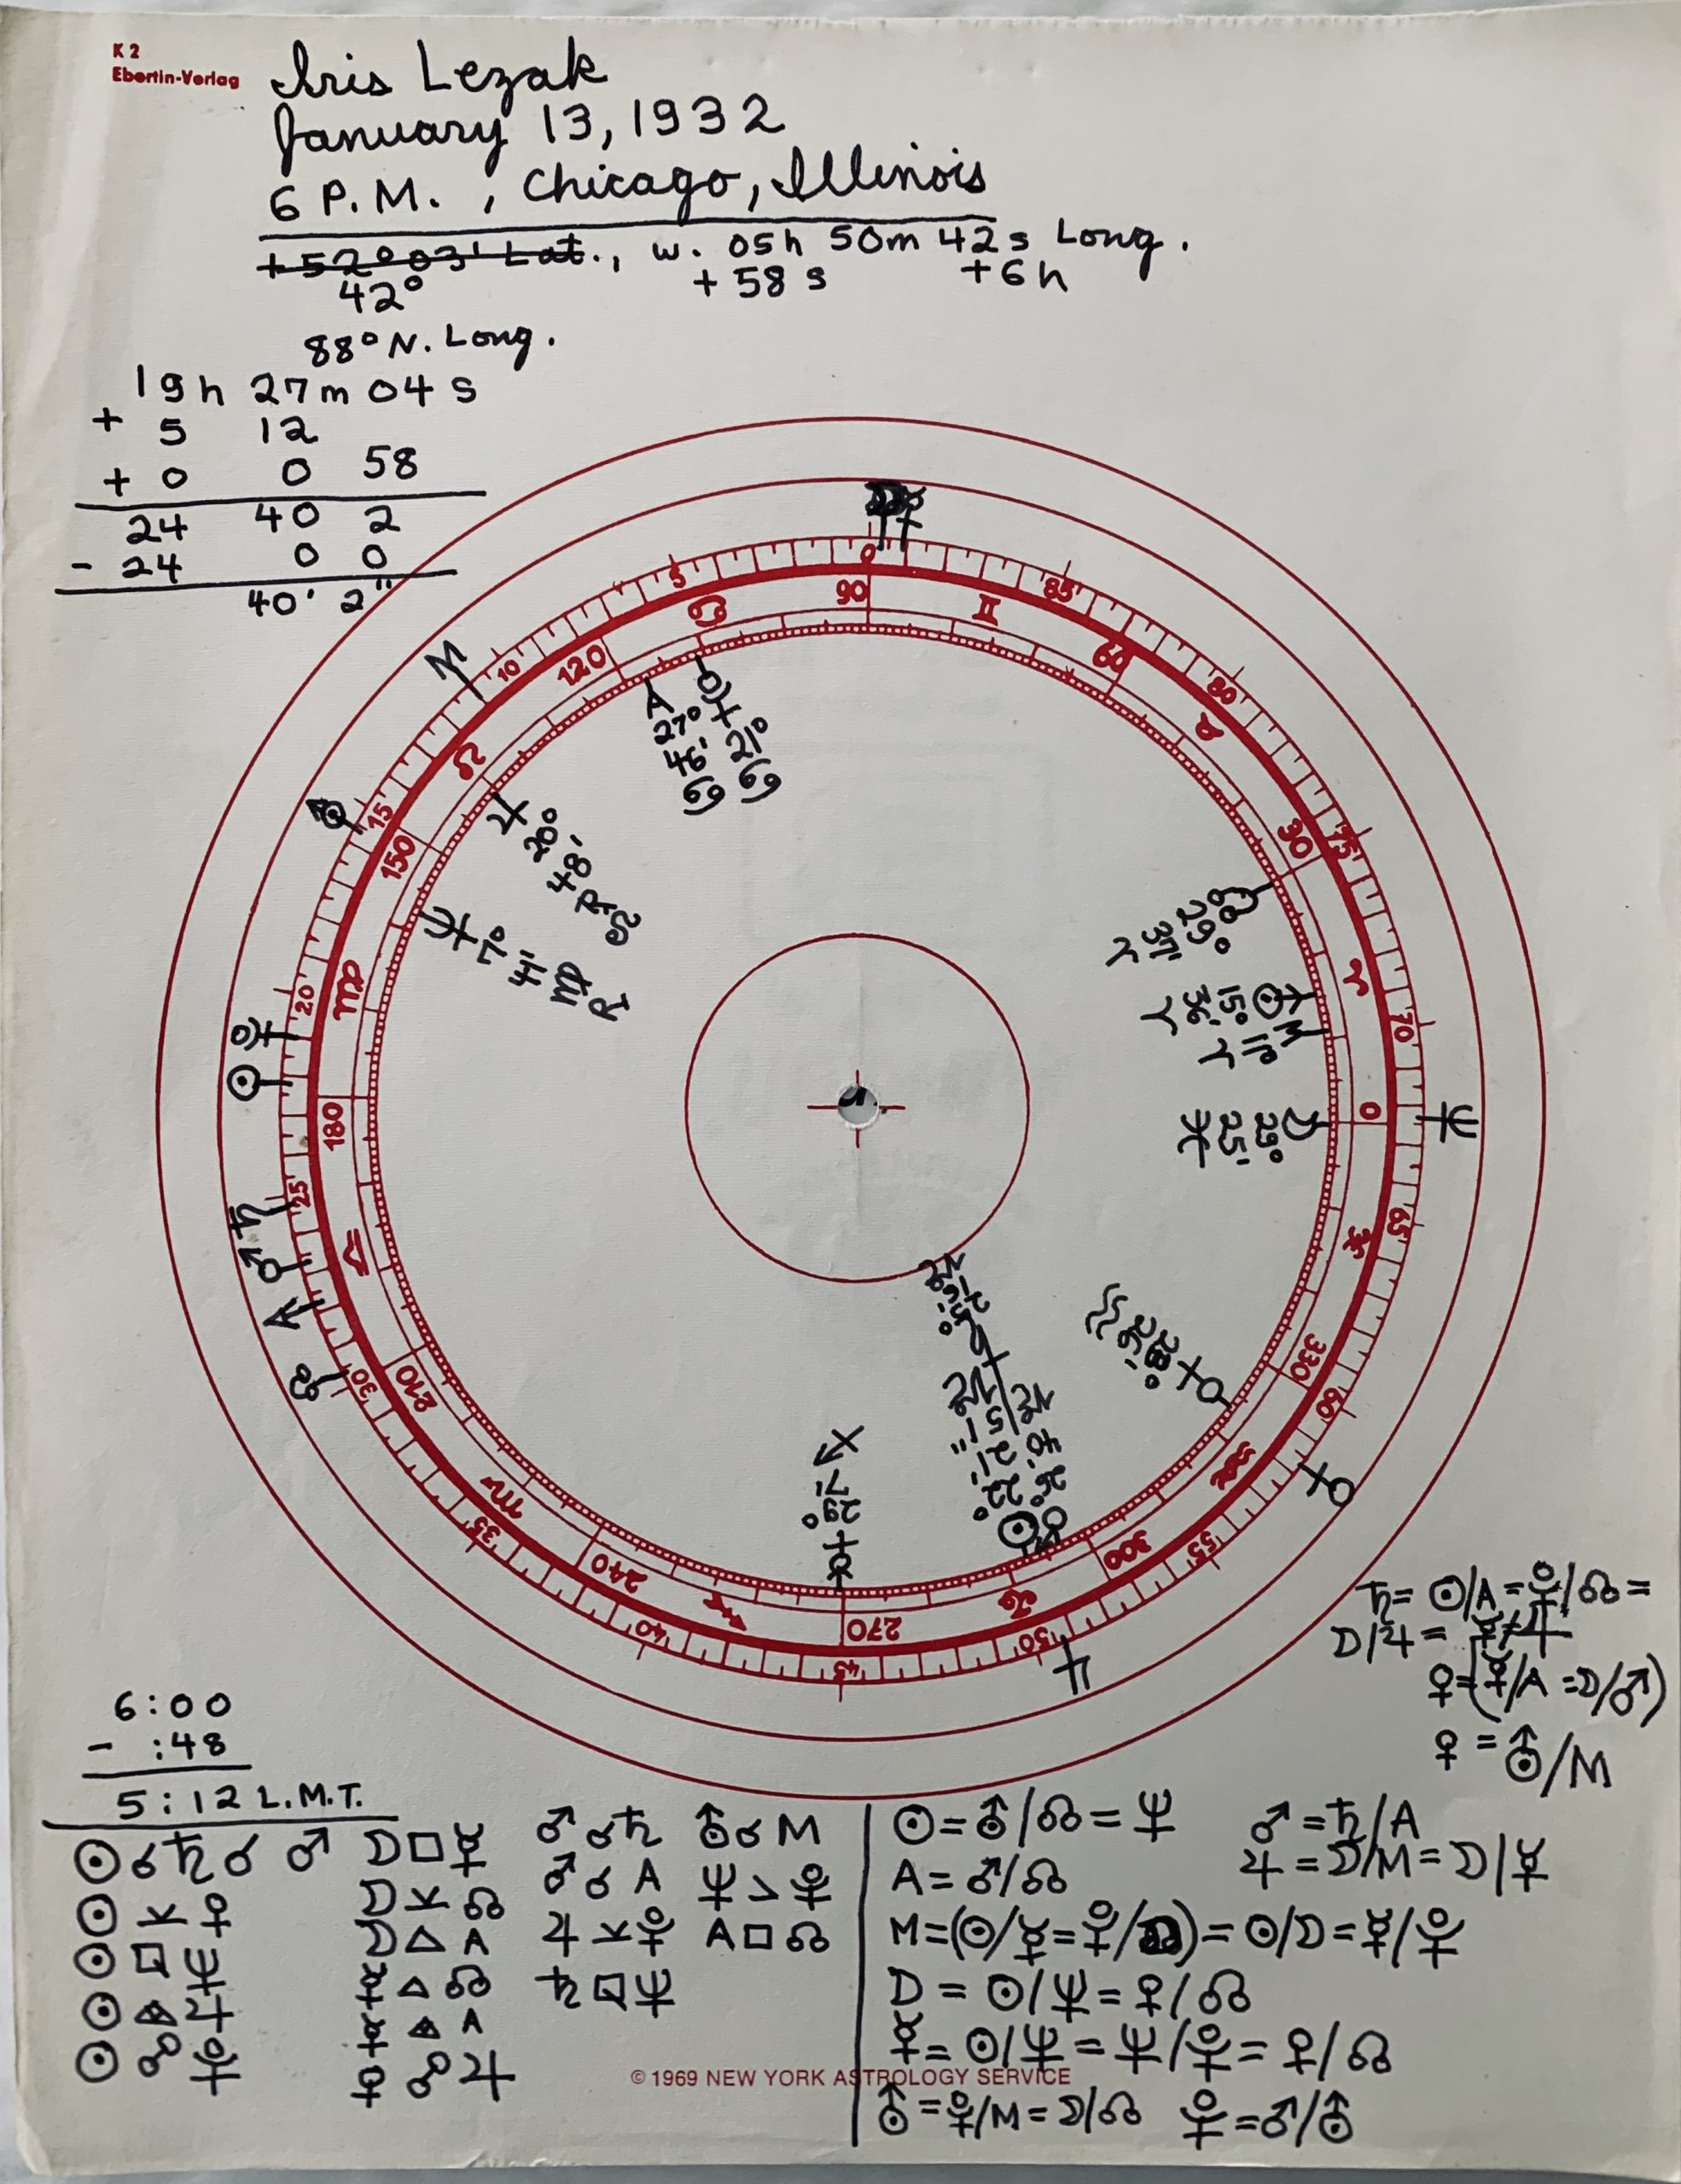 K 2
Ebertin-Verlag
Iris Lezak
January 13, 1932
6 P.M., Chicago, Illinois
+52°03' Lat., w. 05h 50m 42s Long.
42° +58s +6h
88° N. Long.
19h 27m 04s
+ 5 12
+ 0 0 58
24 40 2
- 24 0 0
40' 2"
0 85 80 75 70 65 60 55 50 45 40 35 30 25 20 15 10 5
90 60 30 0 330 300 270 240 210 180 150 120
♋ ♊ ♉ ♈ ♓ ♒ ♑ ♐ ♏ ♎ ♍ ♌
M
A 27° 46' ♋
♇ 21° ♋
♃ 20° 48' ℞ ♌
♆ 7° ♍ ℞
☊ 29° ♈
⛢ 15° 36' ♈
M 11° ♈
☽ 29° 25' ♓
♀ 28° 26' ♒
♂ 26° 40' ♑
☉ 22° 21' 51" ♑
♄ ♑
☿ 29° 7' ♐
6:00
- :48
5:12 L.M.T.
☉☌♄☌♂ ☽□☿ ♂☌♄ ⛢☌M
☉⚺♀ ☽⚺☊ ♂☌A ♆>♇
☉⚼♆ ☽△A ♃⚺♇ A□☊
☉ ♃ ☿△☊ ♄⚼♆
☉☍♇ ☿ A
♀☍♃
♄=☉/A=♇/☊=
☽/♃=
♀=(☿/A=☽/♂)
♀=⛢/M
☉=⛢/☊=♆ ♂=♄/A
A=♂/☊ ♃=☽/M=☽/☿
M=(☉/☿=♇/☊)=☉/☽=☿/♇
☽=☉/♆=♀/☊
☿=☉/♆=♆/♇=♀/☊
© 1969 NEW YORK ASTROLOGY SERVICE
⛢=♇/M=☽/☊ ♇=♂/⛢